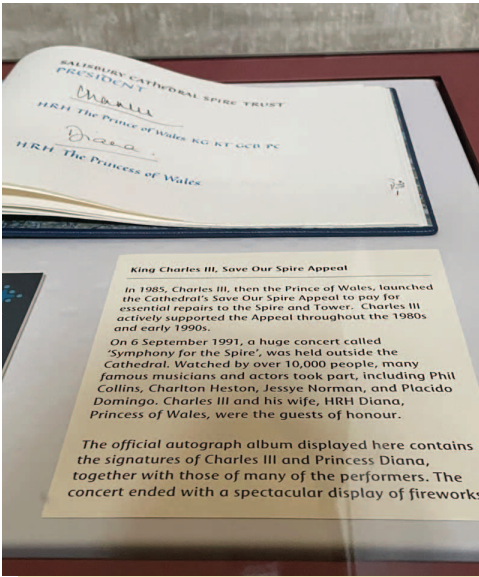 SALISBURY CATHEDRAL SPIRE TRUST
PRESIDENT
Charles
HRH The Prince of Wales KG KT GCB PC
Diana.
HRH The Princess of Wales
King Charles III, Save Our Spire Appeal
In 1985, Charles III, then the Prince of Wales, launched
the Cathedral's Save Our Spire Appeal to pay for
essential repairs to the Spire and Tower. Charles III
actively supported the Appeal throughout the 1980s
and early 1990s.
On 6 September 1991, a huge concert called
'Symphony for the Spire', was held outside the
Cathedral. Watched by over 10,000 people, many
famous musicians and actors took part, including Phil
Collins, Charlton Heston, Jessye Norman, and Placido
Domingo. Charles III and his wife, HRH Diana,
Princess of Wales, were the guests of honour.
The official autograph album displayed here contains
the signatures of Charles III and Princess Diana,
together with those of many of the performers. The
concert ended with a spectacular display of fireworks